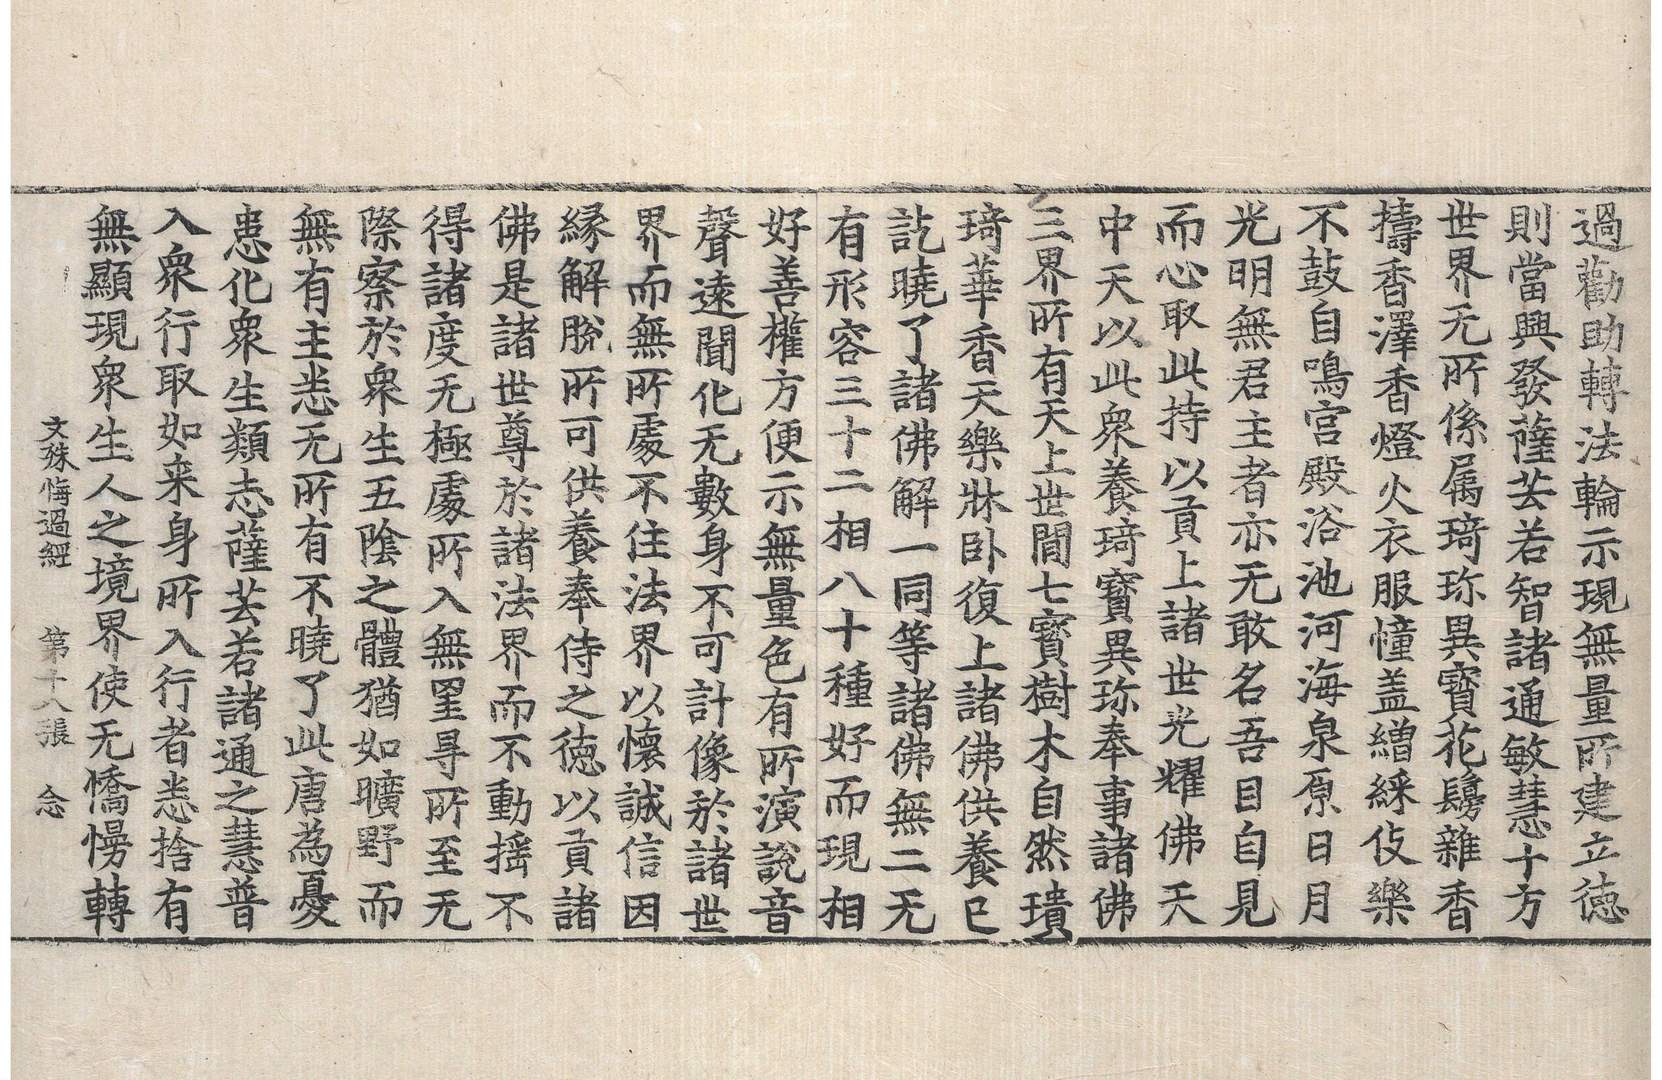 過勸助轉法輪示現無量所建立德
則當興發薩芸若智諸通敏慧十方
世界无所係屬琦珎異寶花鬘雜香
擣香澤香燈火衣服幢盖繒綵伎樂
不鼓自鳴宫殿浴池河海泉原日月
光明無君主者亦无敢名吾目自見
而心取此持以貢上諸世光耀佛天
中天以此衆養琦寶異珎奉事諸佛
三界所有天上世間七寶樹木自然璝
琦華香天樂牀卧復上諸佛供養已
訖曉了諸佛解一同等諸佛無二无
有形容三十二相八十種好而現相
好善權方便示無量色有所演說音
聲遠聞化无數身不可計像於諸世
界而無所處不住法界以懷誠信因
縁解脫所可供養奉侍之德以貢諸
佛是諸世尊於諸法界而不動揺不
得諸度无極處所入無罣㝵所至无
際察於衆生五陰之體猶如曠野而
無有主恙无所有不曉了此唐為憂
恚化衆生類志薩芸若諸通之慧普
入衆行取如来身所入行者恙捨有
無顯現衆生人之境界使无憍慢轉
文殊悔過經 第十八張 念